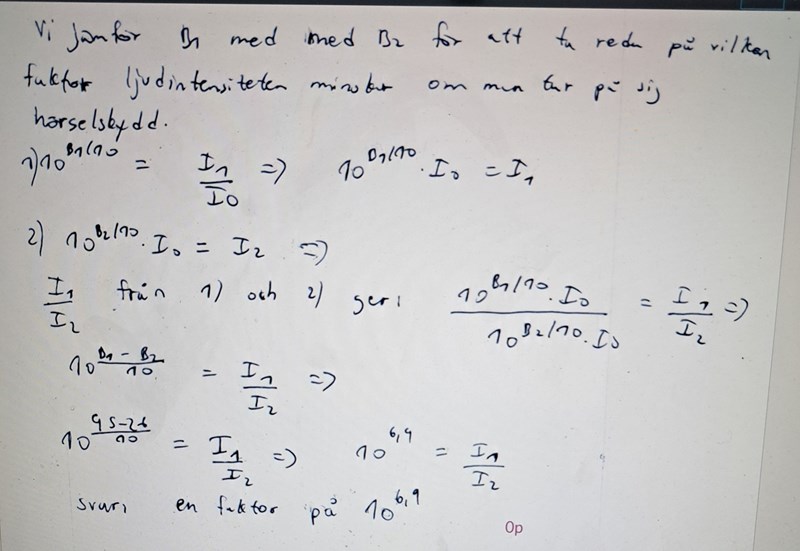 Vi jämför B1 med med B2 för att ta reda på vilken
faktor ljudintensiteten minskar om man tar på sig
hörselskydd.
1) 10^(B1/10) = I1/I0 => 10^(B1/10) · I0 = I1
2) 10^(B2/10) · I0 = I2 =>
I1/I2 från 1) och 2) ger: (10^(B1/10) · I0)/(10^(B2/10) · I0) = I1/I2 =>
10^((B1-B2)/10) = I1/I2 =>
10^((95-26)/10) = I1/I2 => 10^(6,9) = I1/I2
svar: en faktor på 10^(6,9)
0p